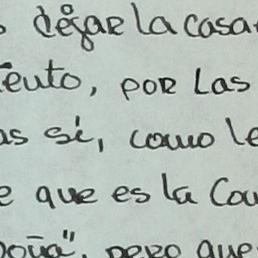 dejar la casa
ento, por las
as sí, como le
e que es la Cou
oña", pero que